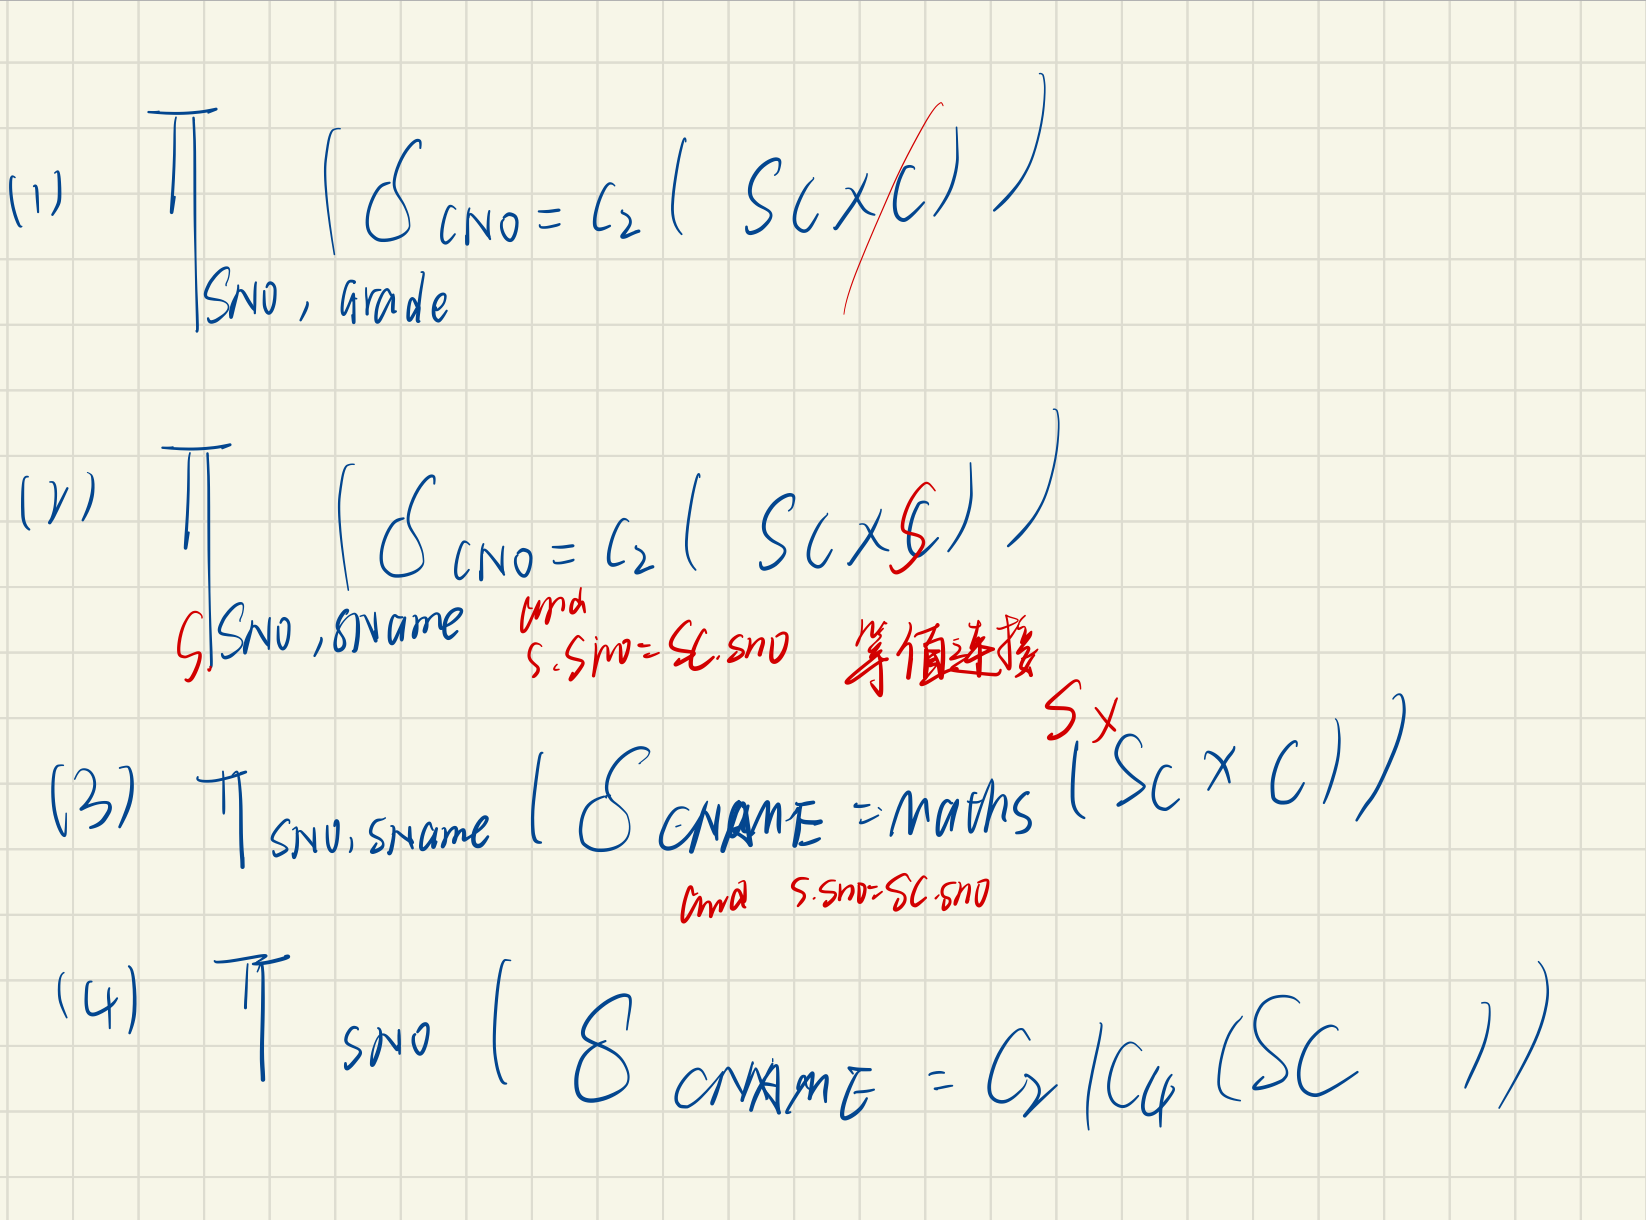 (1) π SNO, Grade (δ CNO = C2 ( SC × C ) )
(2) π S. SNO, SName (δ CNO = C2 ( SC × S ) )
and
S.Sno=SC.sno 等值连接
S ×
(3) π SNO, SName (δ CNAME = Maths (SC × C))
and S.sno=SC.sno
(4) π SNO (δ CNAME = C2 / C4 (SC ))